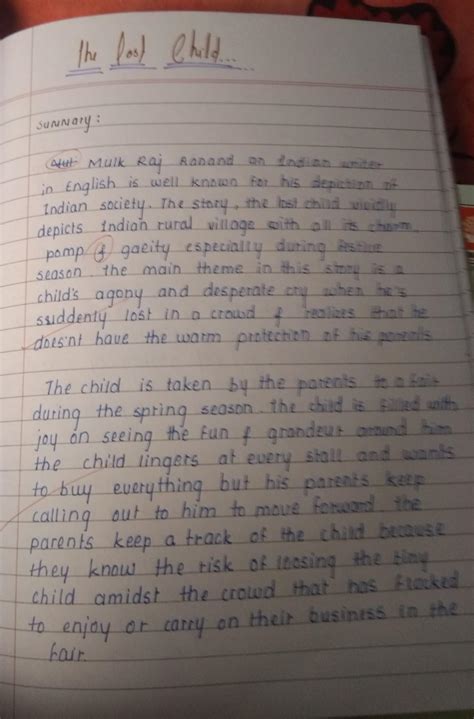 The Lost Child...
Summary:
Mulk Raj Aanand an Indian writer
in English is well known for his depiction of
Indian society. The story, the lost child vividly
depicts Indian rural village with all its charm,
pomp & gaeity especially during festive
season. the main theme in this story is a
child's agony and desperate cry when he's
suddenly lost in a crowd & realizes that he
does'nt have the warm protection of his parents
The child is taken by the parents to a fair
during the spring season. the child is filled with
joy on seeing the fun & grandeur around him
the child lingers at every stall and wants
to buy everything but his parents keep
calling out to him to move forward. the
parents keep a track of the child because
they know the risk of loosing the tiny
child amidst the crowd that has flocked
to enjoy or carry on their business in the
fair.